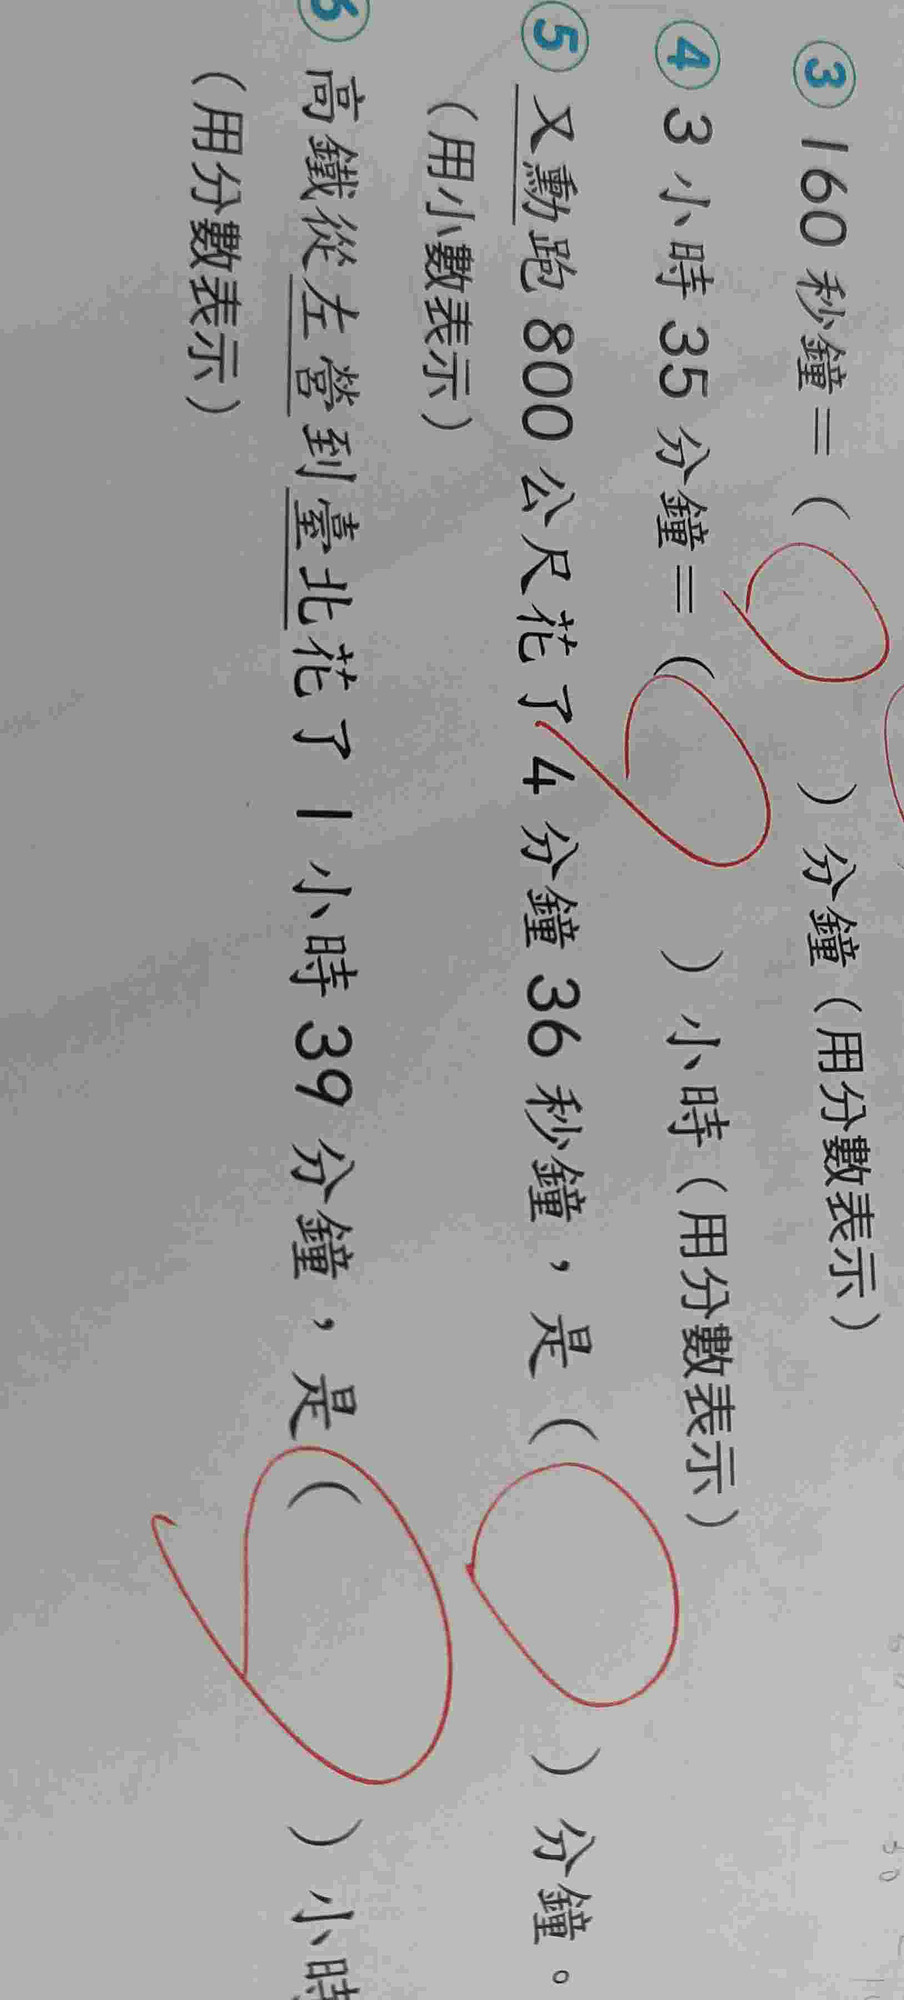 ③ 160 秒鐘＝（　　）分鐘（用分數表示）
④ 3 小時 35 分鐘＝（　　）小時（用分數表示）
⑤ 又勳跑 800 公尺花了 4 分鐘 36 秒鐘，是（　　）分鐘。
（用小數表示）
⑥ 高鐵從左營到臺北花了 1 小時 39 分鐘，是（　　）小時
（用分數表示）